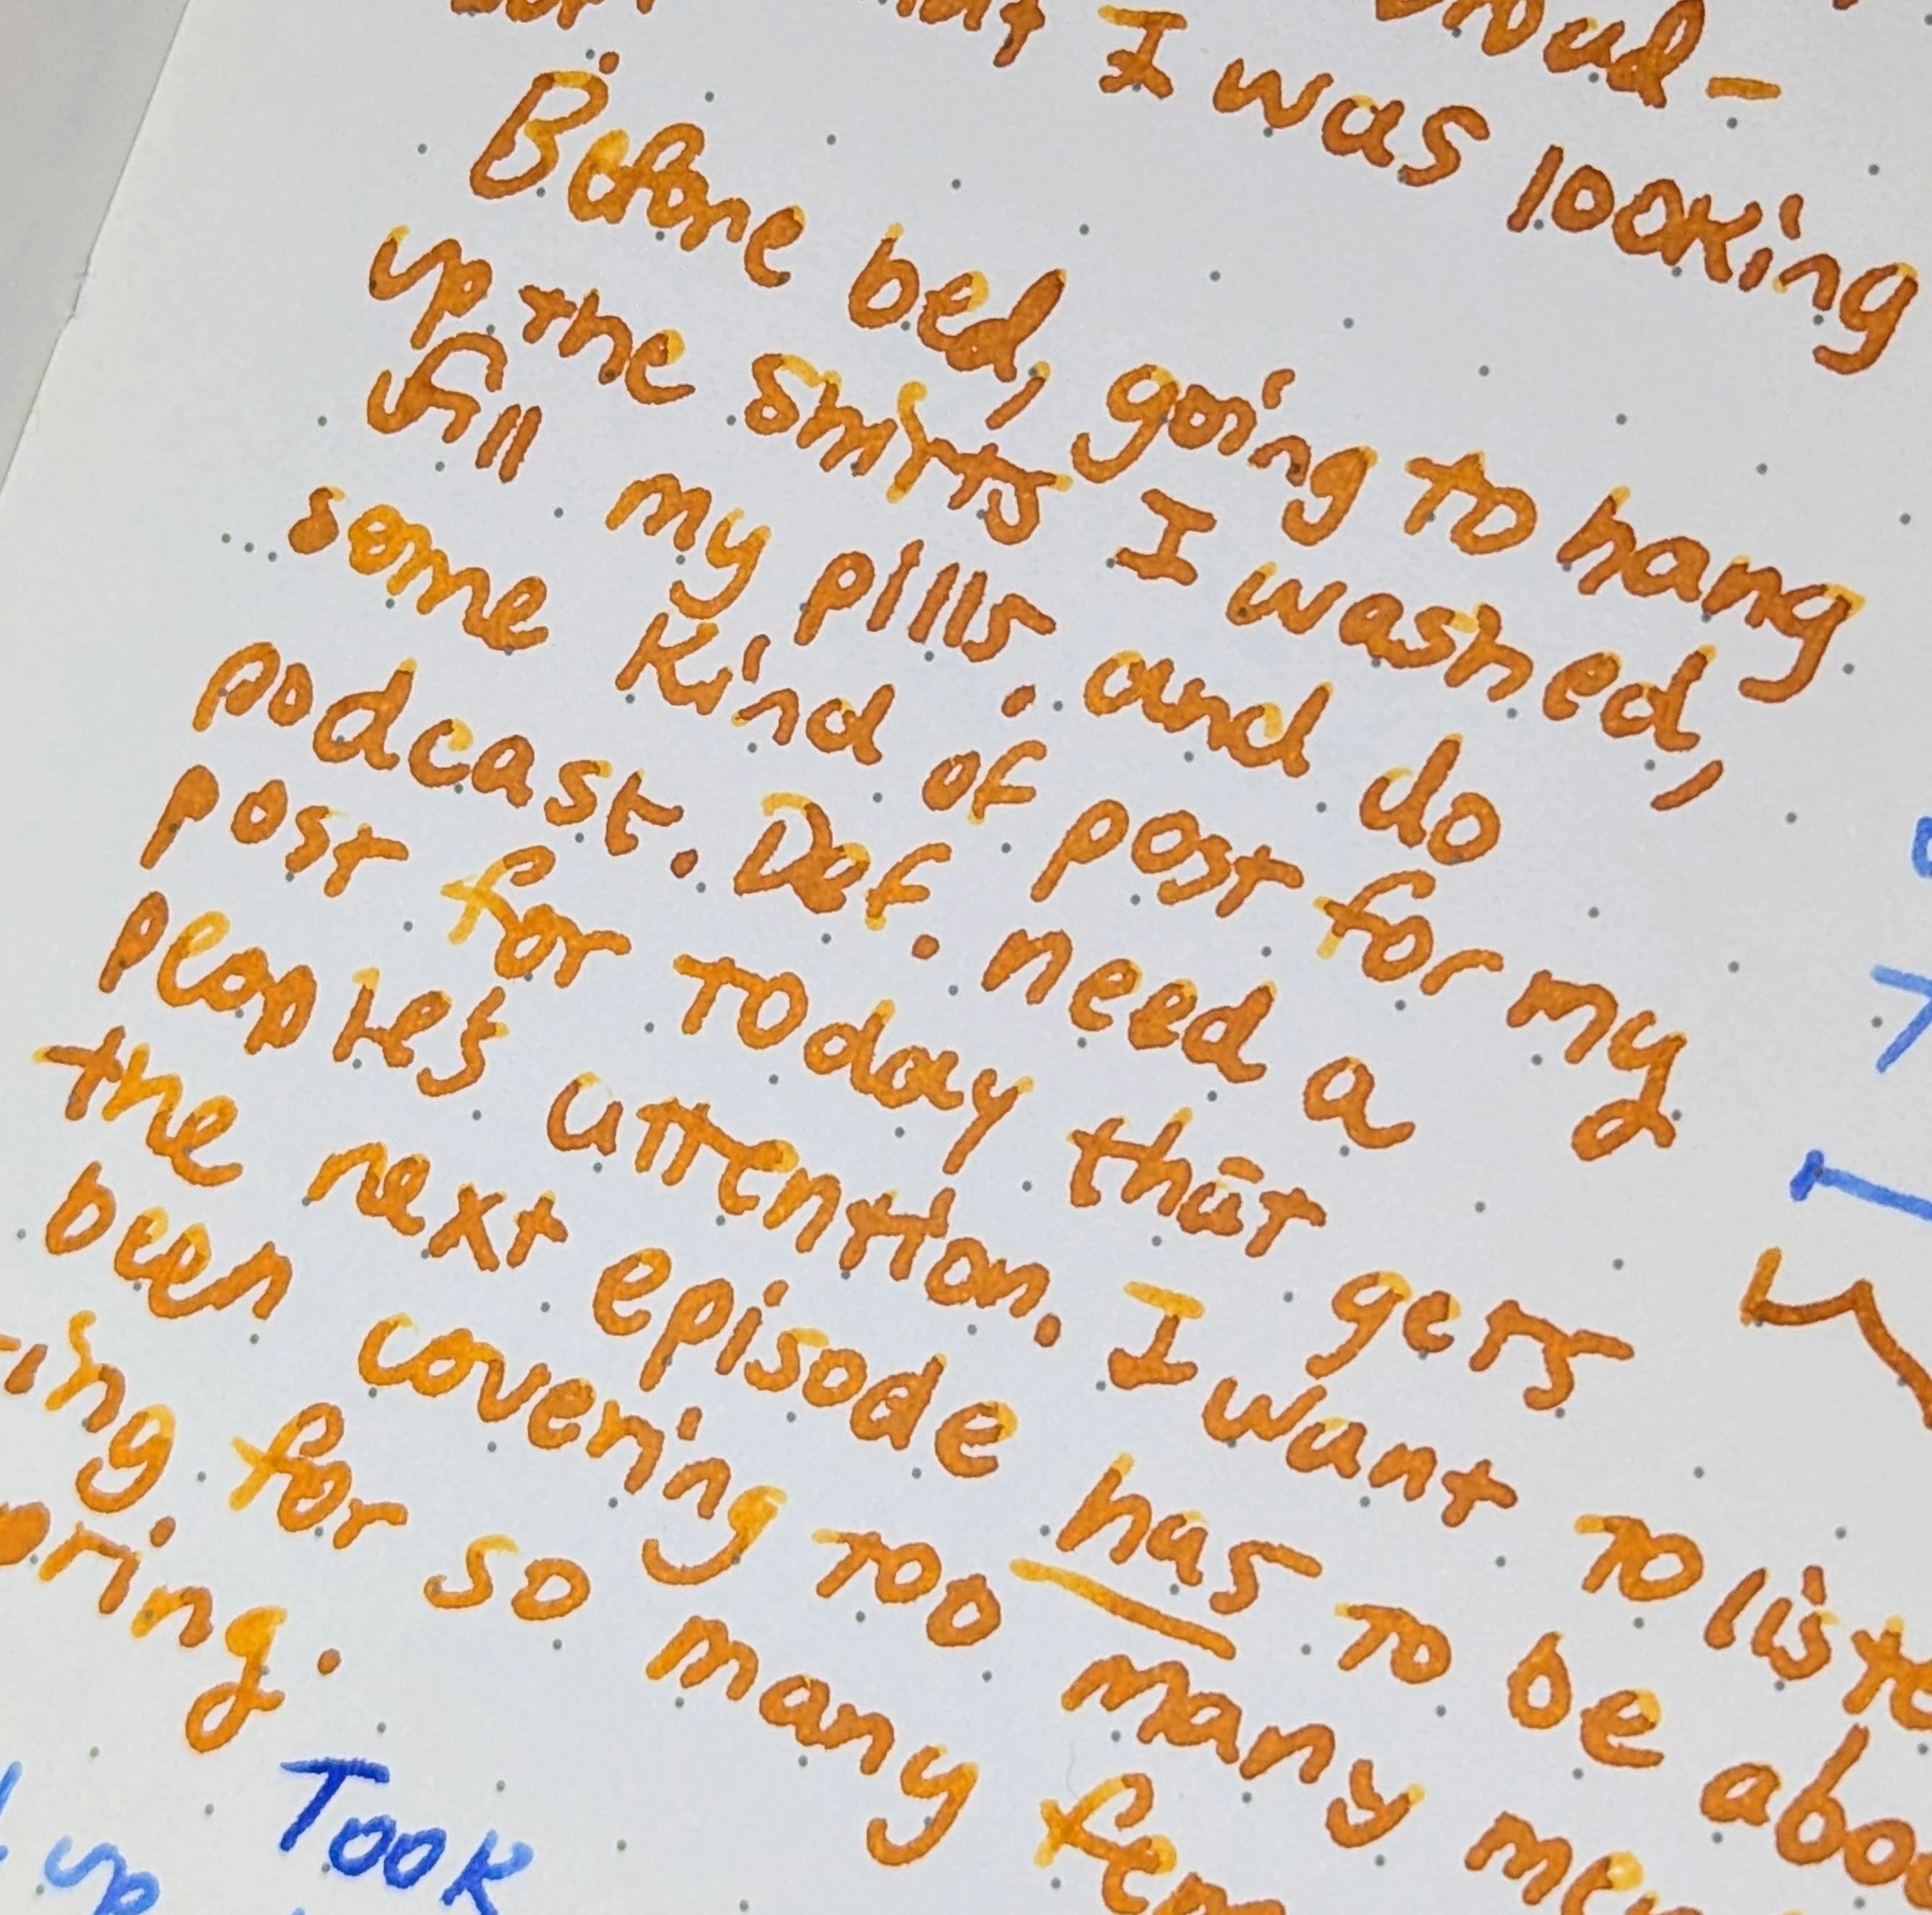 I was looking
Before bed, going to hang
up the shirts I washed,
fill my pills. and do
some kind of post for my
podcast. Def. need a
post for today that gets
people's attention. I want to
the next episode has to be
been covering too many
for so many
Took
up